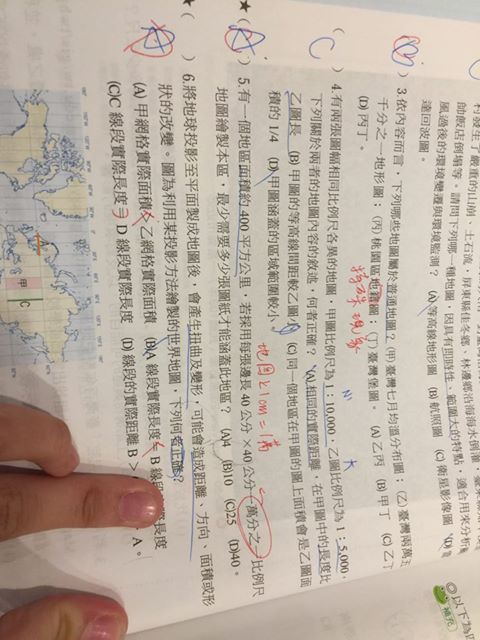 利發生了嚴重的山崩、土石流，屏東縣佳冬鄉、林邊鄉沿海海水倒灌
帥飯店倒塌等。請問下列哪一種地圖，因具有即時性、範圍大的特點，適合用來分析
風過後的環境變遷與環境監測？ (A)等高線地形圖 (B)航照圖 (C)衛星影像圖 (D)
達回波圖。
3.依內容而言，下列哪些地圖屬於普通地圖？(甲)臺灣七月均溫分布圖；(乙)臺灣兩萬五
千分之一地形圖；(丙)桃園區地籍圖；(丁)臺灣堡圖。 (A)乙丙 (B)甲丁 (C)乙丁
(D)丙丁。
特殊現象
( C ) 4.有兩張圖幅相同比例尺各異的地圖，甲圖比例尺為1：10,000，乙圖比例尺為1：5,000，
下列關於兩者的地圖內容的敘述，何者正確？ (A)相同的實際距離，在甲圖中的長度比
乙圖長 (B)甲圖的等高線間距較乙圖小 (C)同一個地區在甲圖的圖上面積會是乙圖面
積的1/4 (D)甲圖涵蓋的區域範圍較小。
小
大
地圖上1cm＝1萬
★( A ) 5.有一個地區面積約400平方公里，若採用每張邊長40公分×40公分、萬分之一比例尺
地圖繪製本區，最少需要多少張圖紙才能涵蓋此地區？ (A)4 (B)10 (C)25 (D)40。
★( A ) 6.將地球投影至平面製成地圖後，會產生扭曲及變形，可能會造成距離、方向、面積或形
狀的改變。圖為利用某投影方法繪製的世界地圖，下列何者正確？
(A)甲網格實際面積＜乙網格實際面積 (B)A線段實際長度＜B線段實際長度
(C)C線段實際長度＝D線段實際長度 (D)線段的實際距離B＞
A。
甲
C
◎以下為
補充